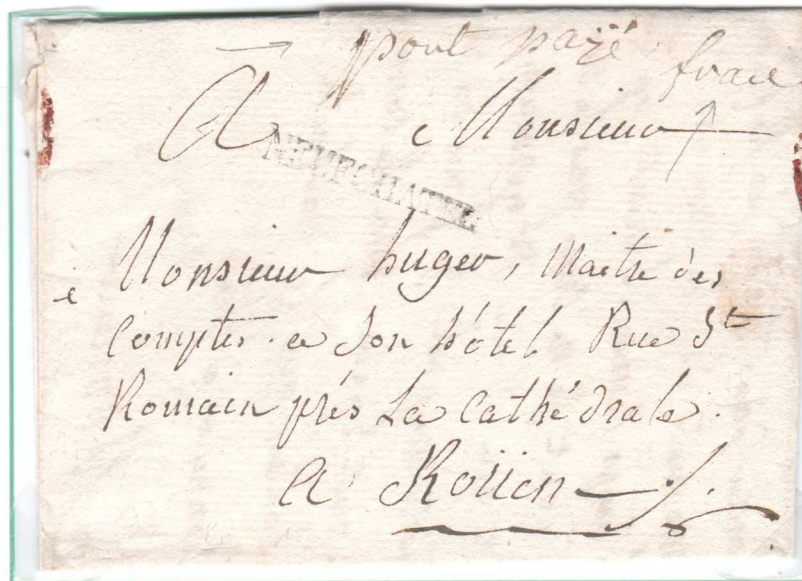 port payé franc
A Monsieur
NEUFCHATEL
Monsieur huger, Maitre des
Comptes. a son hôtel Rue St
Romain près La Cathédrale.
A Roüen